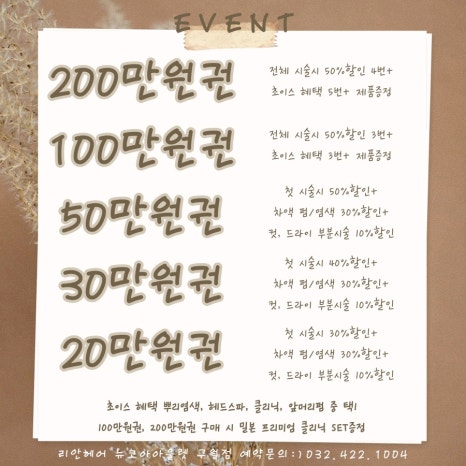 EVENT
200만원권
전체 시술시 50%할인 4번+
초이스 혜택 5번+ 제품증정
100만원권
전체 시술시 50%할인 3번+
초이스 혜택 3번+ 제품증정
50만원권
첫 시술시 50%할인+
차액 펌/염색 30%할인+
컷, 드라이 부분시술 10%할인
30만원권
첫 시술시 40%할인+
차액 펌/염색 30%할인+
컷, 드라이 부분시술 10%할인
20만원권
첫 시술시 30%할인+
차액 펌/염색 30%할인+
컷, 드라이 부분시술 10%할인
초이스 혜택 뿌리염색, 헤드스파, 클리닉, 앞머리펌 중 택1
100만원권, 200만원권 구매 시 밀본 프리미엄 클리닉 SET증정
리안헤어 뉴코아아울렛 구월점 예약문의:)032.422.1004